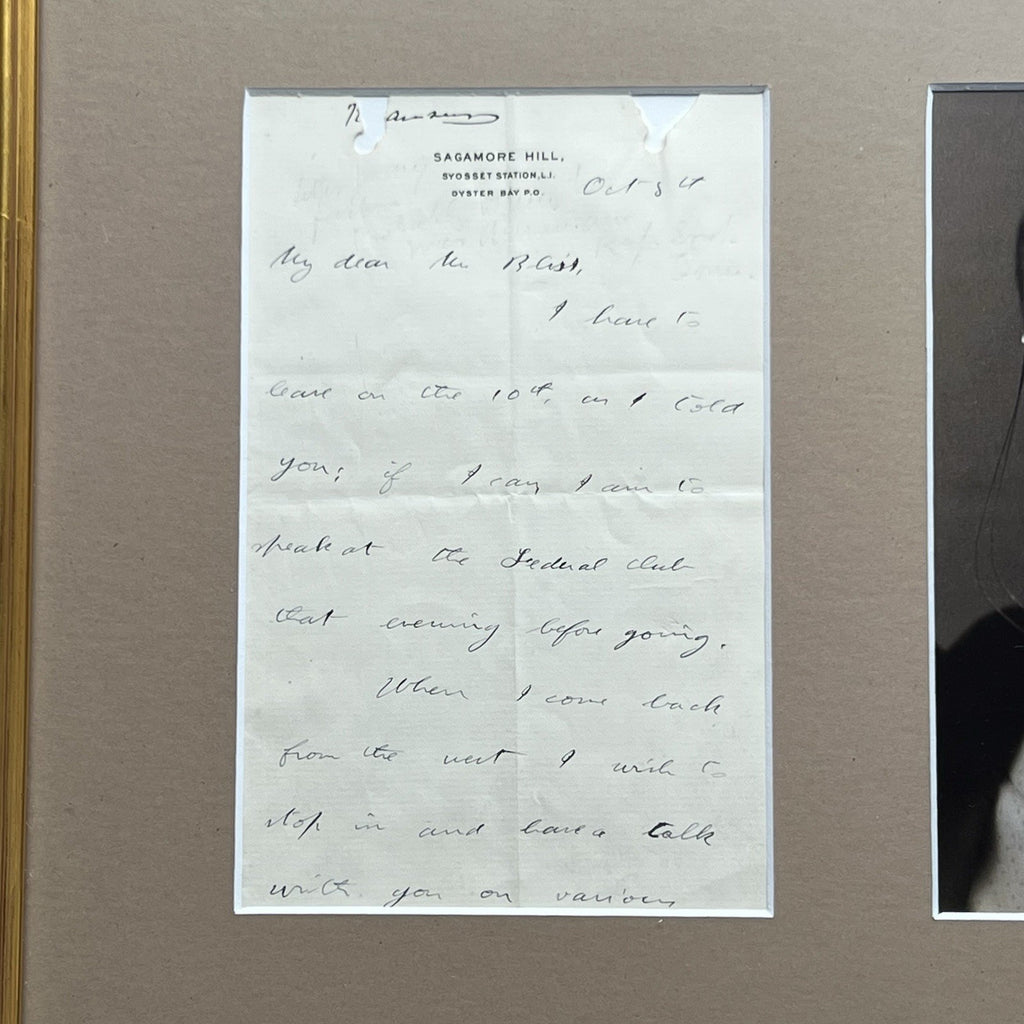 SAGAMORE HILL,
SYOSSET STATION, L.I.
OYSTER BAY P.O.
Oct 8th
My dear Mr Bliss,
I have to
leave on the 10th, as I told
you; if I can I am to
speak at the Federal Club
that evening before going.
When I come back
from the west I wish to
stop in and have a talk
with you on various